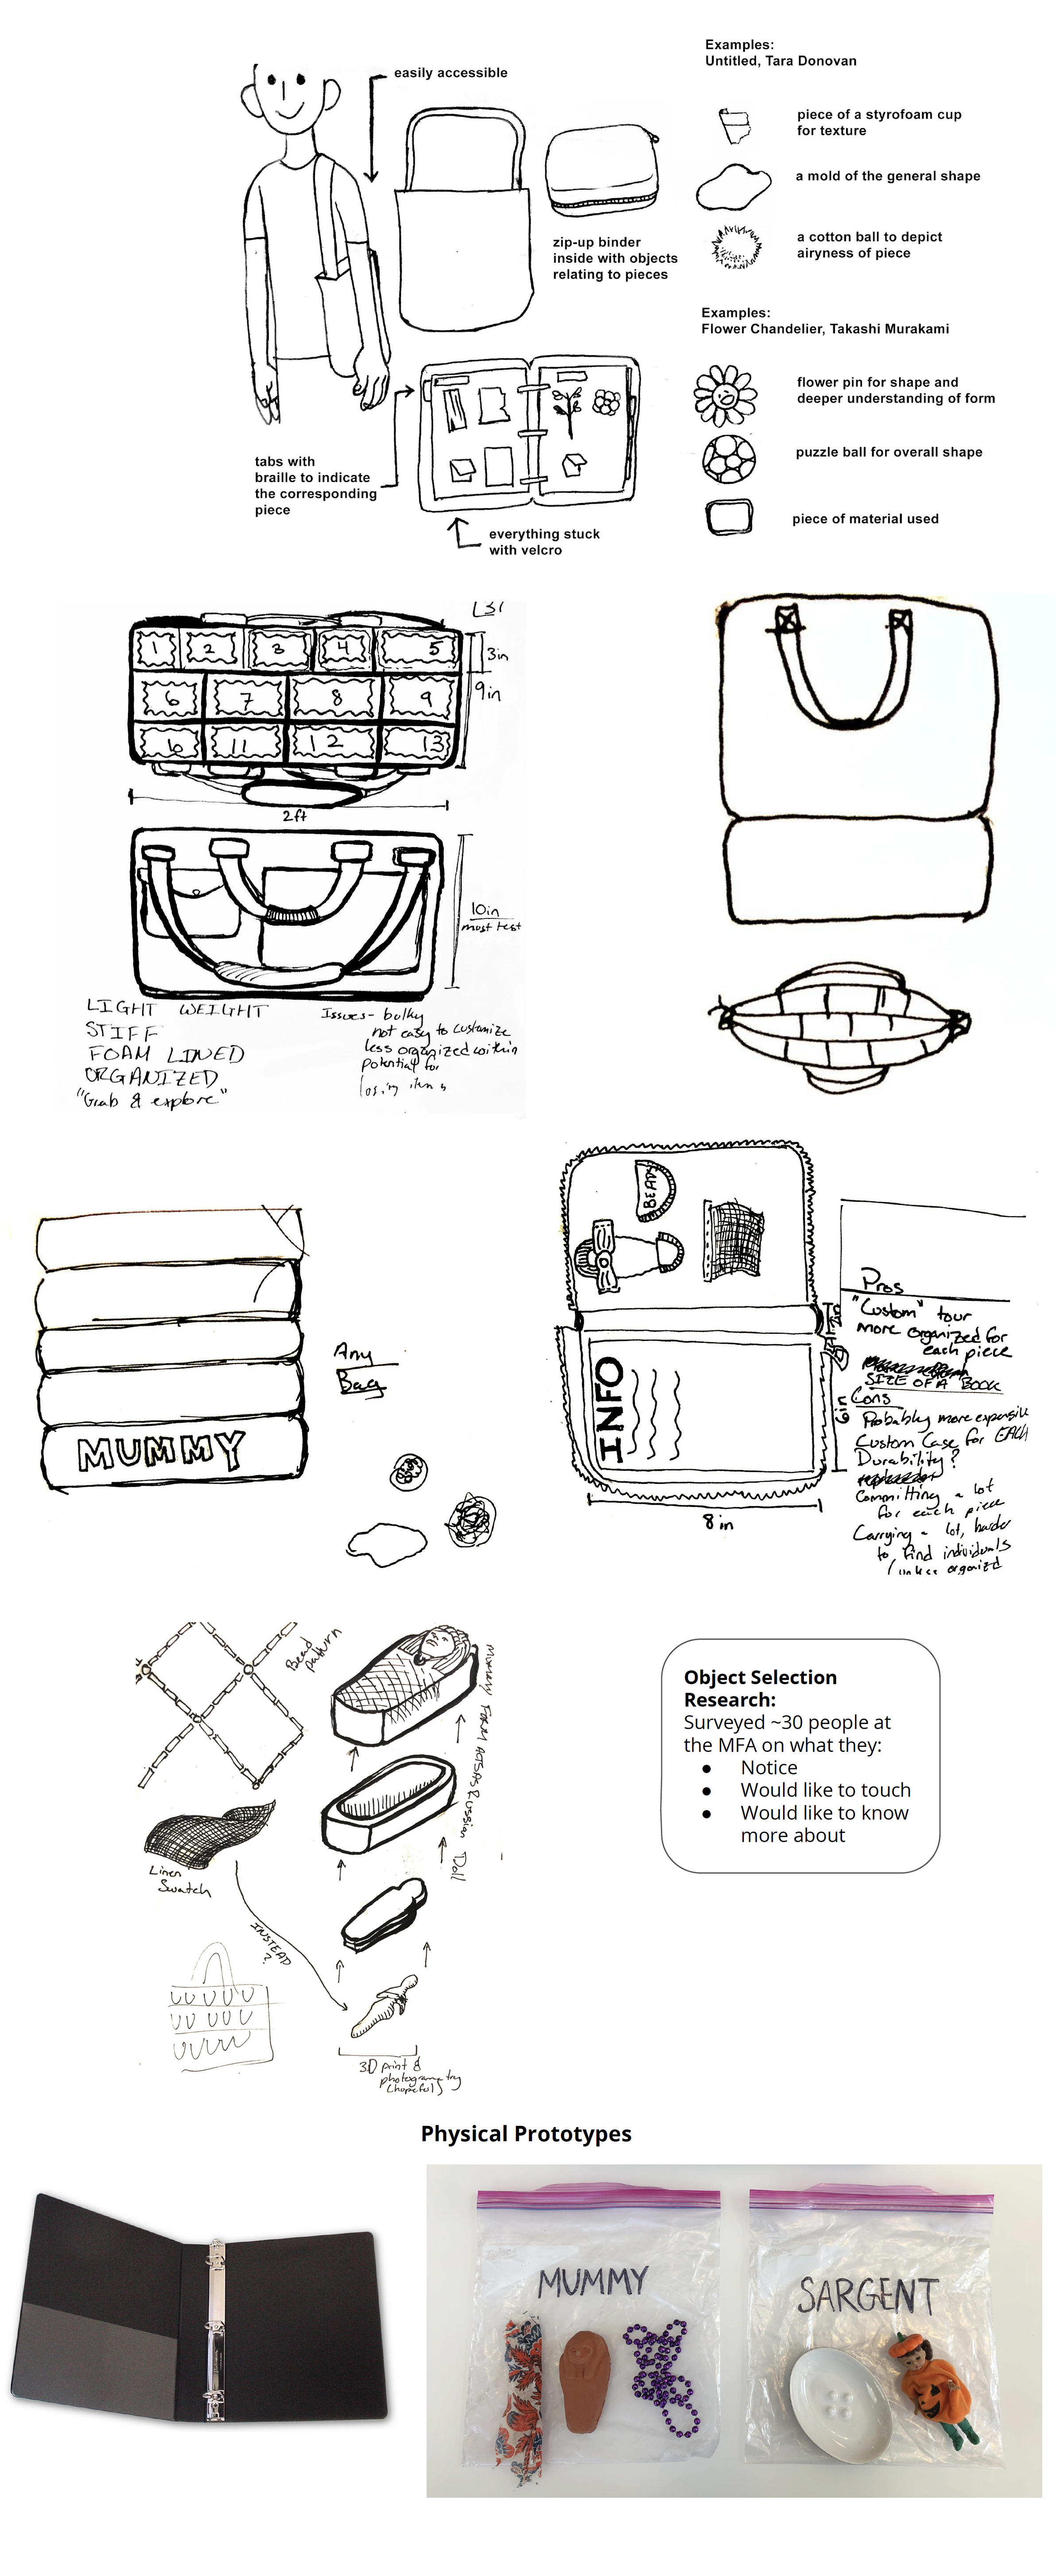 Examples:
Untitled, Tara Donovan
easily accessible
piece of a styrofoam cup
for texture
a mold of the general shape
a cotton ball to depict
airyness of piece
zip-up binder
inside with objects
relating to pieces
Examples:
Flower Chandelier, Takashi Murakami
flower pin for shape and
deeper understanding of form
puzzle ball for overall shape
piece of material used
tabs with
braille to indicate
the corresponding
piece
everything stuck
with velcro
1 2 3 4 5
3in
6 7 8 9
9in
10 11 12 13
2ft
10in
must test
LIGHT WEIGHT
STIFF
FOAM LINED
ORGANIZED
"Grab & explore"
Issues- bulky
not easy to customize
less organized within
potential for
losing items
MUMMY
Any
Bag
BEADS
INFO
2in
6in
8in
Pros
"Custom" tour
more organized for
each piece
SIZE OF A BOOK
Cons
Probably more expensive
Custom Case for EACH
Durability?
Committing a lot
for each piece
Carrying a lot, harder
to find individuals
unless organized
Bead
pattern
Mummy Form acts as Russian Doll
Linen
Swatch
INSTEAD
?
3D print &
photogrametry
(hopeful)
Object Selection
Research:
Surveyed ~30 people at
the MFA on what they:
● Notice
● Would like to touch
● Would like to know
more about
Physical Prototypes
MUMMY
SARGENT